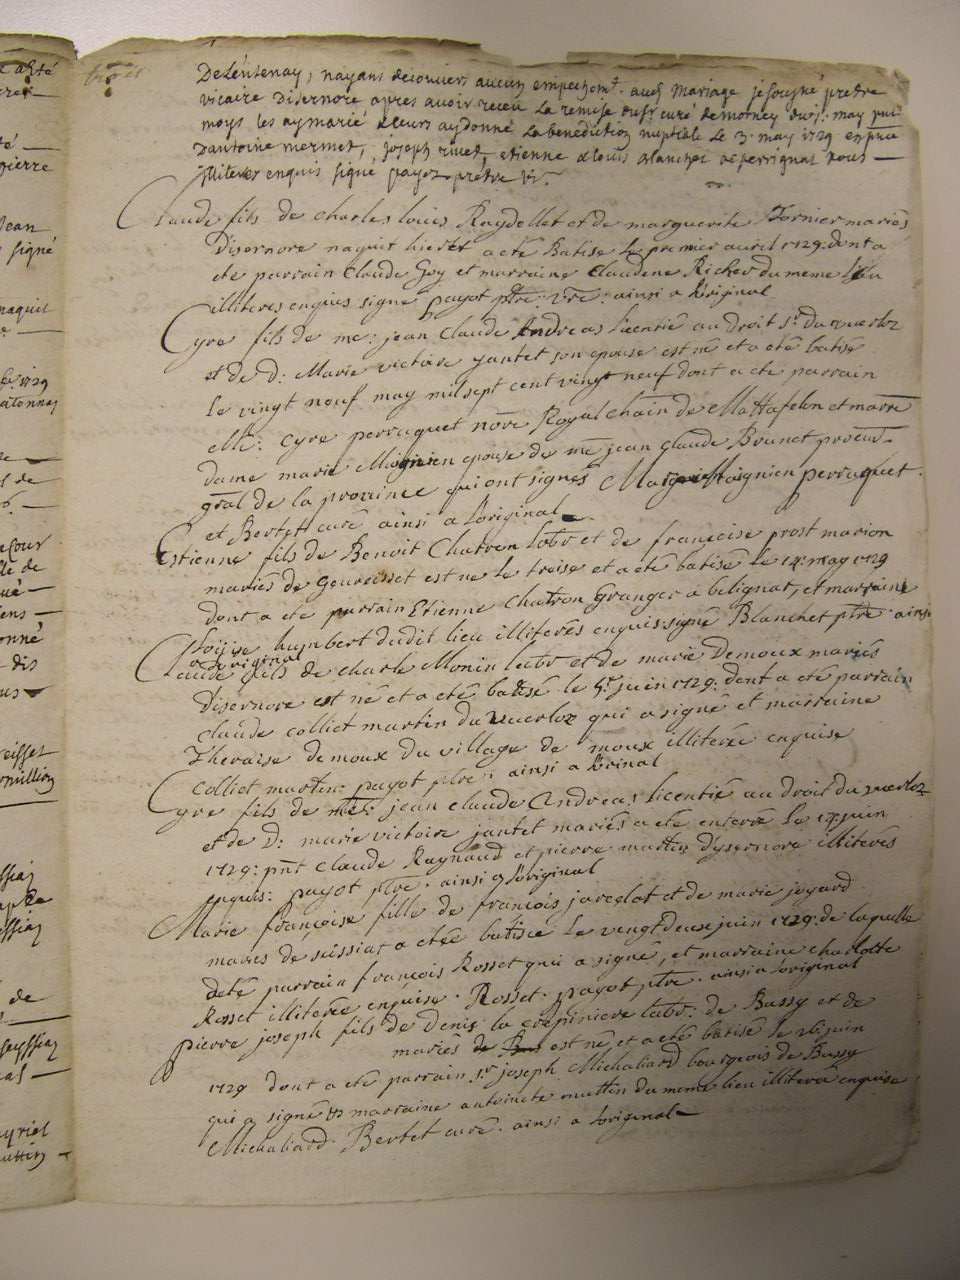 De Lentenay, nayans decouvers aucun empechemt. aud. mariage je soysigné pretre
vicaire Disernore apres avoir receu la remise du sr curé de morney du j. may
moys les ay marié & leurs ay donné la benediction nuptiale le 3. may 1729 en
Dantoine mermet, joseph rivet, etienne & louis blanchet de perrignat tous —
illiteres enquis signé payot pretre
Claude fils de charles louis Raydellet et de marguerite Tornier mariés
Disernore naquit hier et a eté Batisé Le premier avril 1729. dont a
eté parrain Claude Goy et marraine Claudene Richer du meme lieu
illiteres enquis signé payot ptre: vre: ainsi a l'original
Cyre fils de me: jean Claude Andreas licentié au droit sr. du querloz
et de D: Marie victoire jantet son epouse est né et a eté batisé
le vingt nouf may mil sept cent vingt neuf dont a eté parrain
Me: cyre perruquet nore Royal chain de Mattafelon et marre
dame marie Maignien epouse de me jean Claude Brunet procur.
gral de la province qui ont signés Maignien perruquet.
et Bertet curé ainsi a l'original
Estienne fils de Benoit Chatron labr et de françoise prost marion
mariés de Geovreisset est né le treise et a eté batisé le 14 may 1729
dont a eté parrain Etienne Chatron Granger a belignat, et marraine
Loyise humbert dudit lieu illiterés enquis signé Blanchet ptre ainsi
a l'original
Claude fils de charle Monin labr et de marie Demoux mariés
Disernore est né et a eté batisé le 5e. juin 1729. dont a eté parrain
claude colliet martin du querloz qui a signé et marraine
Theraise demoux du village de moux illiteré enquise
colliet martin: payot ptre: ainsi a l'orinal
Cyre fils de me: jean claude Andreas licentié au droit du querloz
et de D: marie victoire jantet mariés a eté enterré le 17. juin
1729: pnt claude Raynaud et pierre martin d'ysernore illiterés
enquis: payot ptre. ainsi a l'original
Marie françoise fille de françois javelot et de marie joyard
maries de seissiat a etée batisée le vingt deuse juin 1729. de laquelle
a eté parrain françois Rosset qui a signé, et marraine charlotte
Rosset illiterée enquise. Rosset. payot ptre. ainsi a l'original
pierre joseph fils de Denis la crepiniere labr: de Bussy et de
mariés de Bus est né et a eté batisé le 26 juin
1729 dont a eté parrain sr. joseph Michaliard bourgeois de Bussy
qui a signé & marraine antoinete muttin du meme lieu illiterée enquise
Michaliard. Bertet curé. ainsi a l'original